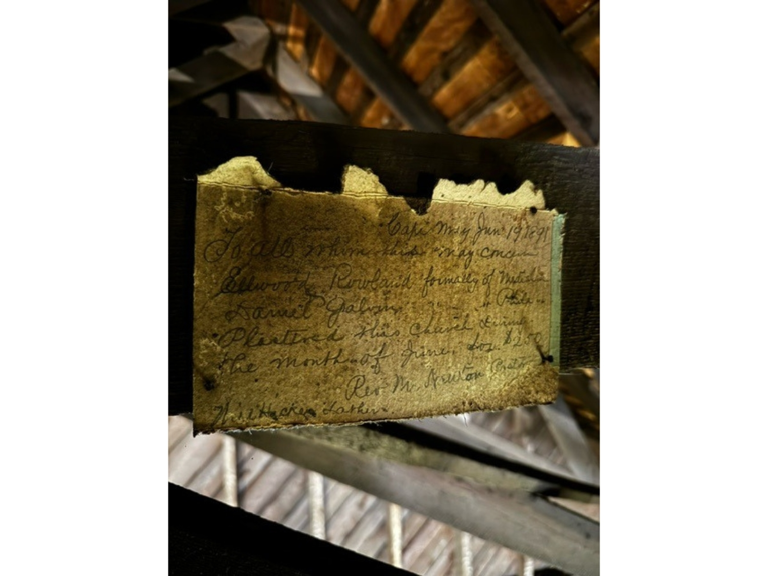 Cape May Jun 19 1891
To All Whom this may concern
Ellwood Rowland formally of
Daniel Galvin " " Phila
Plastered this Church during
the month of June, for $250
Rev M. Newton
Hacker Lather